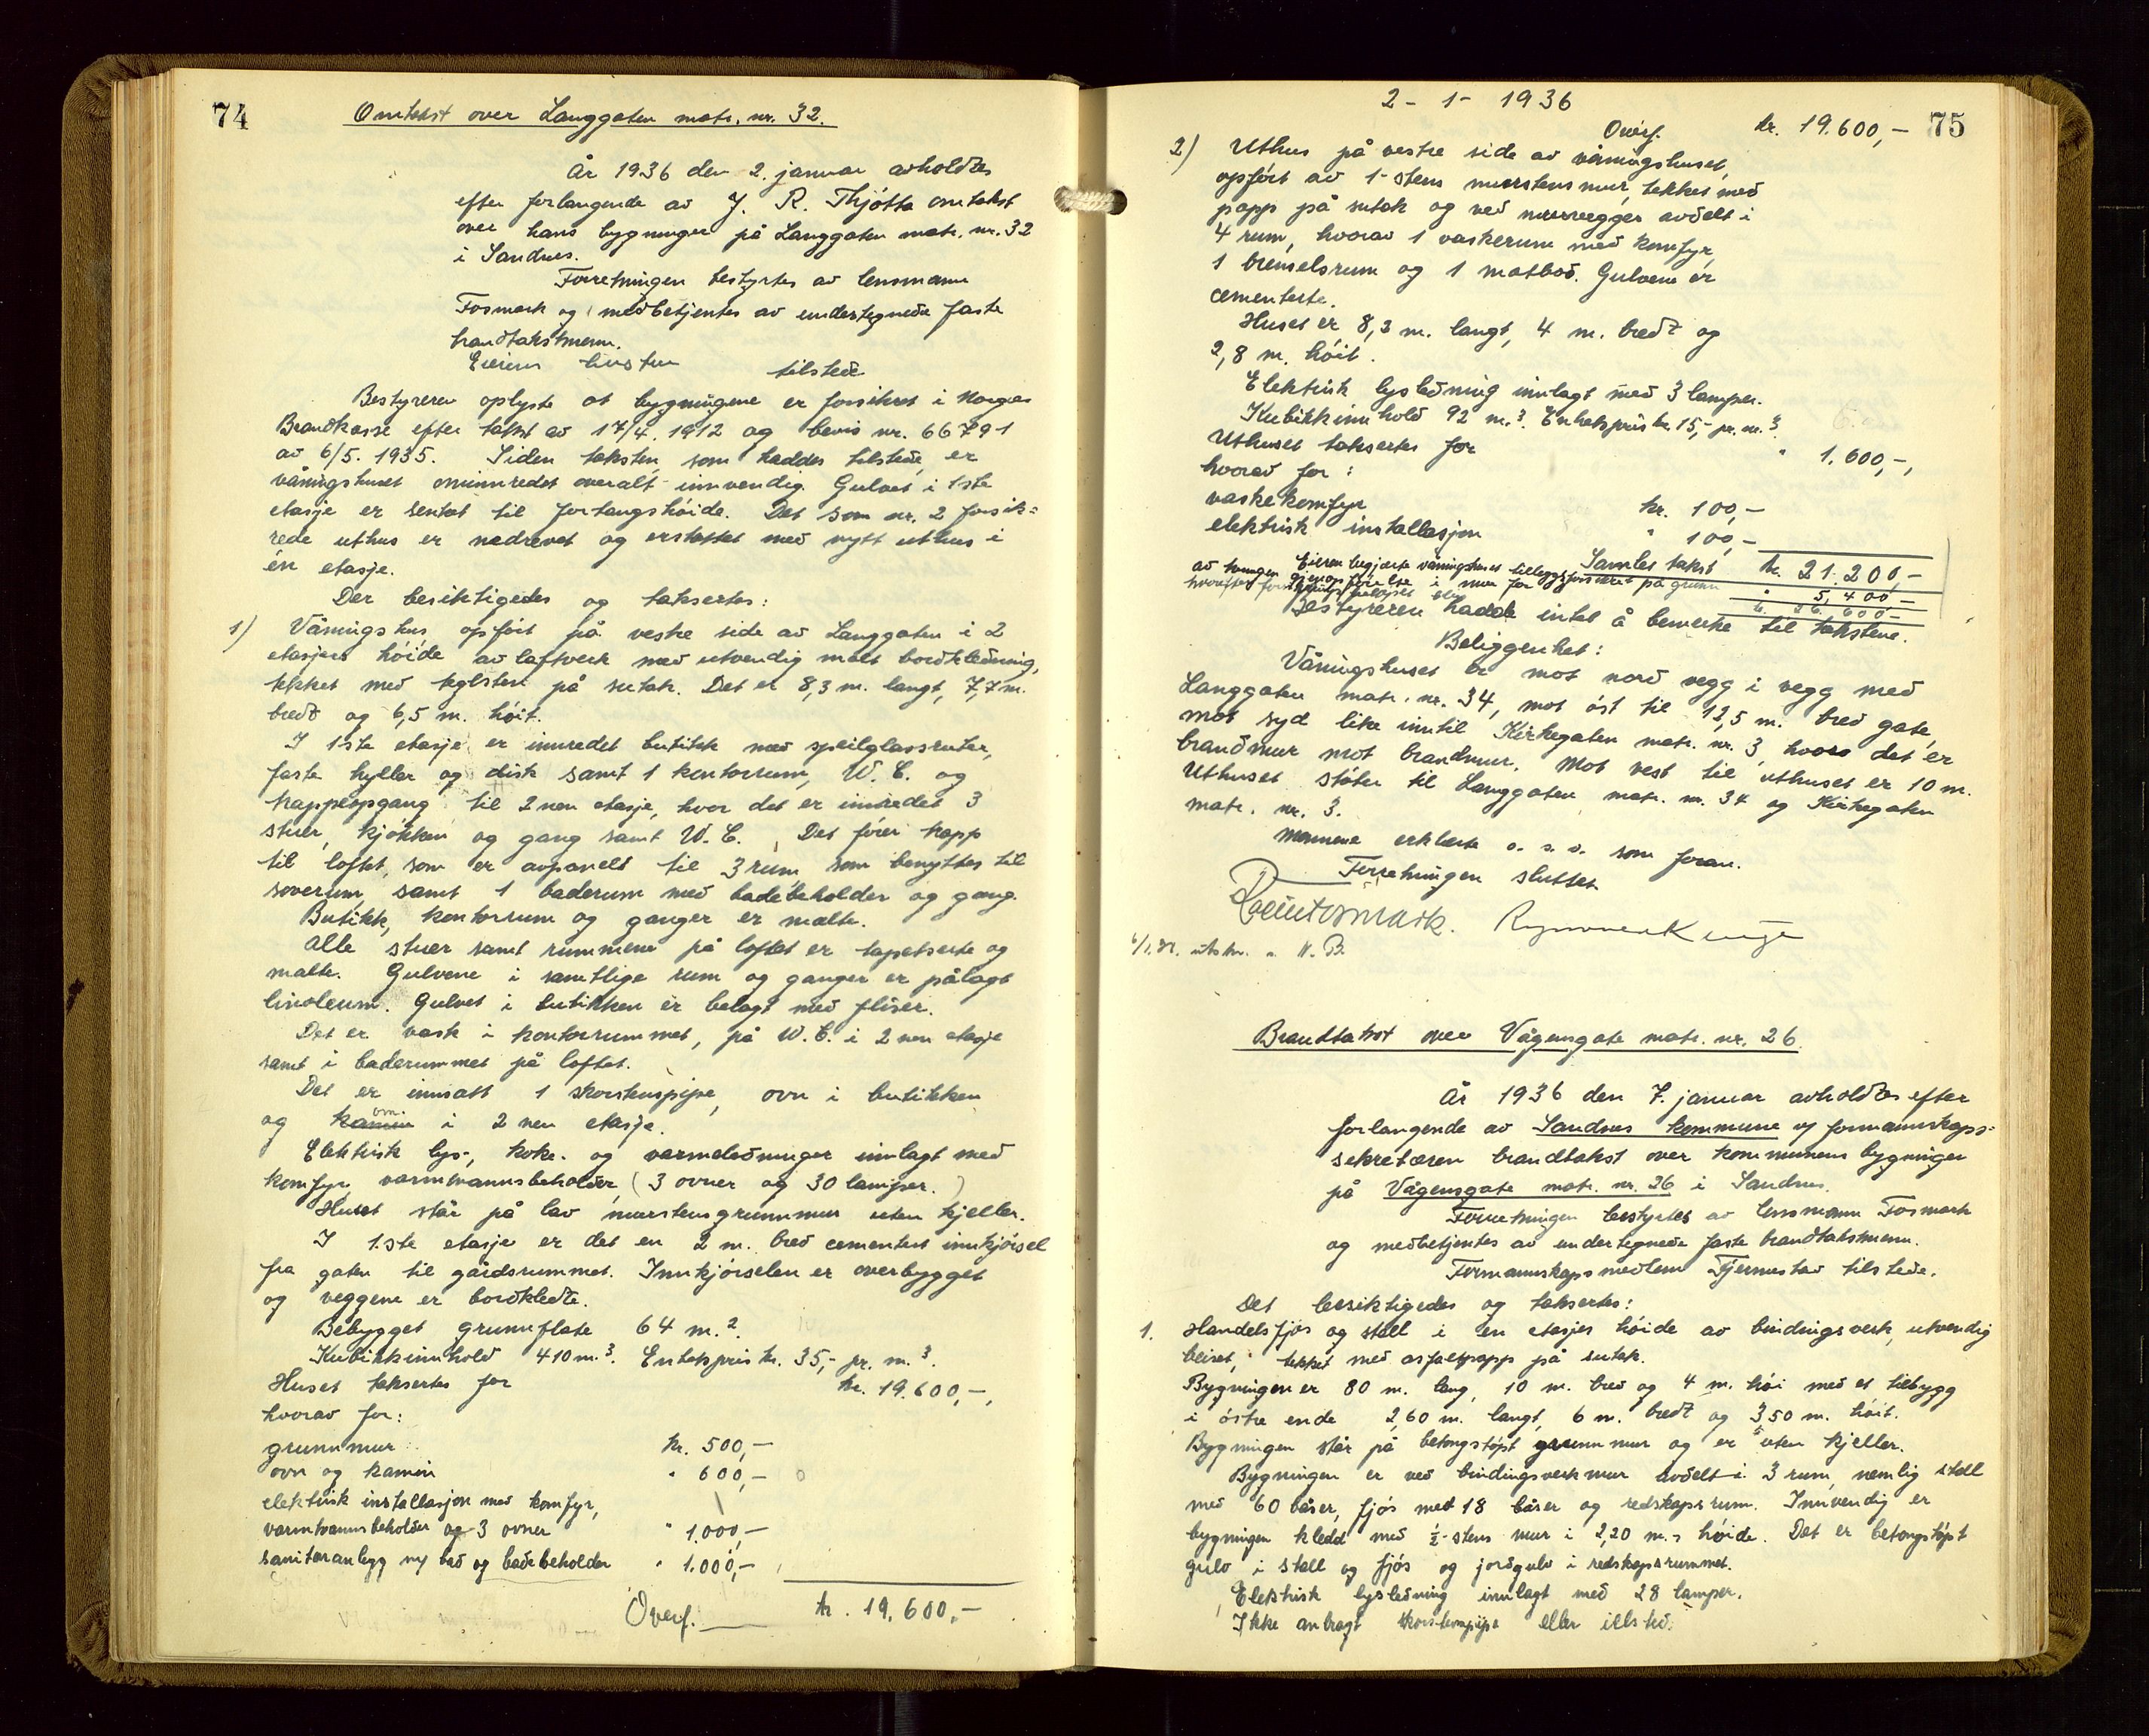 74
Omtakst over Langgaten matr. nr. 32.
År 1936 den 2. januar avholdtes
efter forlangende av J. R. Thjötta omtakst
over hans bygninger på Langgaten matr. nr. 32
i Sandnes.
Forretningen bestyrtes av lensmann
Fosmark og medbetjentes av undertegnede faste
brandtakstmenn.
Eieren tilstede
Bestyreren oplyste at bygningene er forsikret i Norges
Brandkasse efter takst av 17/4. 1912 og bevis nr. 66791
av 6/5. 1935. Siden taksten, som haddes tilstede, er
våningshuset ominnredet overalt innvendig. Gulvet i 1ste
etasje er senket til fortaugshöide. Det som nr. 2 forsik=
rede uthus er nedrevet og erstattet med nytt uthus i
én etasje.
Der besiktigedes og taksertes:
1) Våningshus, opfört på vestre side av Langgaten i 2
etasjers höide av laftverk med utvendig malt bordkledning,
tekket med teglsten på sutak. Det er 8,3 m. langt, 7,7 m.
bredt og 6,5 m. höit.
I 1ste etasje er innredet butikk med speilglassruter,
faste hyller og disk samt 1 kontorrum, W. C. og
trappeopgang til 2nen etasje, hvor det er innredet 3
stuer, kjökken og gang samt W. C. Det förer trapp
til loftet, som er avpanelt til 3 rum, som benyttes til
soverum, samt 1 baderum med badebeholder og gang.
Butikk, kontorrum og ganger er malte.
Alle stuer samt rummene på loftet er tapetserte og
malte. Gulvene i samtlige rum og ganger er pålagt
linoleum. Gulvet i butikken er belagt med fliser.
Det er vask i kontorrummet, på W. C. i 2nen etasje
samt i baderummet på loftet.
Det er innsatt 1 skorstenspipe, ovn i butikken
og kamin ovn i 2nen etasje.
Elektrisk lys-, koke- og varmeledninger innlagt med
komfyr, varmtvannsbeholder, (3 ovner og 30 lamper.)
Huset står på lav murstensgrunnmur uten kjeller.
I 1.ste etasje er det en 2 m. bred cementert innkjörsel
fra gaten til gårdsrummet. Innkjörselen er overbygget
og veggene er bordkledte.
Bebygget grunnflate 64 m.²
Kubikkinnhold 410 m.³. Enhetspris kr. 35,- pr. m.³.
Huset taksertes for kr. 19.600,-,
hvorav for:
grunnmur kr. 500,-
ovn og kamin " 600,-
elektrisk installasjon med komfyr,
varmtvannsbeholder og 3 ovner " 1.000,-
sanitæranlegg m/ bad og badebeholder " 1.000,-
Overf. kr. 19.600,-
2-1-1936
75
Overf. kr. 19.600,-
2) Uthus på vestre side av våningshuset,
opfört av 1-stens murstensmur, tekket med
papp på sutak og ved murvegger avdelt i
4 rum, hvorav 1 vaskerum med komfyr,
1 brenselsrum og 1 matbod. Gulvene er
cementerte.
Huset er 8,3 m. langt, 4 m. bredt og
2,8 m. höit.
Elektrisk lysledning innlagt med 3 lamper.
Kubikkinnhold 92 m.³. Enhetspris kr. 15,- pr. m.³.
Uthuset taksertes for " 1.600,-,
hvorav for:
vaskekomfyr kr. 100,-
elektrisk installasjon " 100,-
Samlet takst kr. 21.200,-
Eieren begjærte våningshuset tilleggsforsikret på grunn
av tvungen gjenopförelse i mur for " 5,400-
hvorefter forsikringsbelöpet blir kr. 26.600-
Bestyreren hadde intet å bemerke til takstene.
Beliggenhet:
Våningshuset er mot nord vegg i vegg med
Langgaten matr. nr. 34, mot öst til 12,5 m. bred gate,
mot syd like inntil Kirkegaten matr. nr. 3, hvor det er
brandmur mot brandmur. Mot vest til uthuset er 10 m.
Uthuset stöter til Langgaten matr. nr. 34 og Kirkegaten
matr. nr. 3.
Mennene erklærte o. s. v. som foran.
Forretningen sluttet.
6/1.36. utskr. N. B.
Brandtakst over Vågensgate matr. nr. 26.
År 1936 den 7. januar avholdtes efter
forlangende av Sandnes kommune v/ formannskaps-
sekretæren brandtakst over kommunens bygninger
på Vågensgate matr. nr. 26 i Sandnes.
Forretningen bestyrtes av lensmann Fosmark
og medbetjentes av undertegnede faste brandtakstmenn.
Formannskapsmedlem Tjernestad tilstede.
Det besiktigedes og taksertes:
1. Handelsfjös og stall i én etasjes höide av bindingsverk, utvendig
beiset, tekket med asfaltpapp på sutak.
Bygningen er 80 m. lang, 10 m. bred og 4 m. höi med et tilbygg
i östre ende 2,60 m. langt, 6 m. bredt og 3,50 m. höit.
Bygningen står på betongstöpt grunnmur og er uten kjeller.
Bygningen er ved bindingsverkmur avdelt i 3 rum, nemlig stall
med 60 båser, fjös med 18 båser og redskapsrum. Innvendig er
bygningen kledd med ½-stens mur i 2,20 m.s höide. Det er betongstöpt
gulv i stall og fjös og jordgulv i redskapsrummet.
Elektrisk lysledning innlagt med 28 lamper.
Ikke anbragt skorstenspipe eller ildsted.